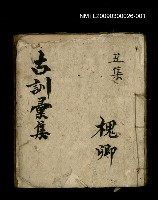 NMTL20090300026-001
五集
古訓彙集
槐卿